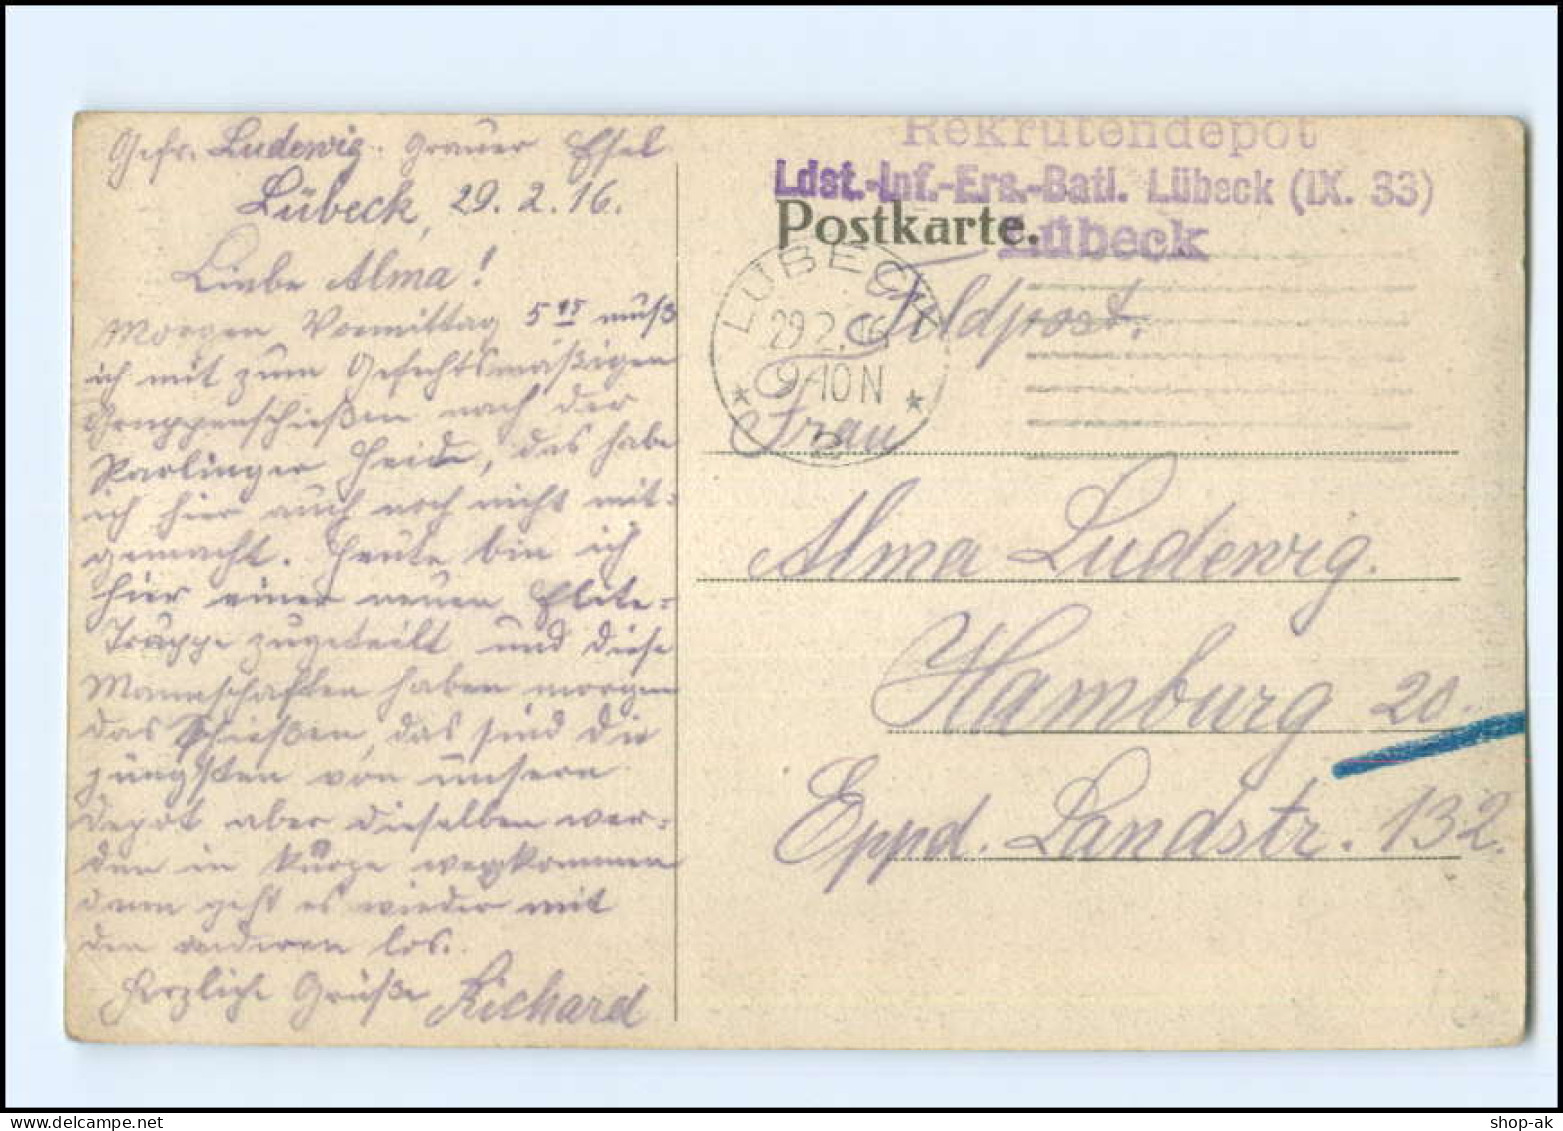 Gefr. Ludewig. Grauer Esel
Lübeck, 29. 2. 16.
Liebe Alma!
Morgen Vormittag 5 45 muß
ich mit zum Gefechtsmäßigen
Gruppenschießen nach der
Heide, das habe
ich hier auch noch nicht mit-
gemacht. Heute bin ich
hier einer neuen Elite-
Truppe zugeteilt und diese
Mannschaften haben morgen
das Schießen, das sind die
jüngsten von unsern
Depot aber dieselben wer-
den in Kürze wegkommen
dann geht es wieder mit
den anderen los.
Herzliche Grüße Richard
Rekrutendepot
Ldst.-Inf.-Ers.-Batl. Lübeck (IX. 33)
Postkarte.
Lübeck
LÜBECK
29.2.16
9-10 N
* 2 *
Feldpost.
Frau
Alma Ludewig.
Hamburg 20.
Eppd. Landstr. 132.
shop-ak